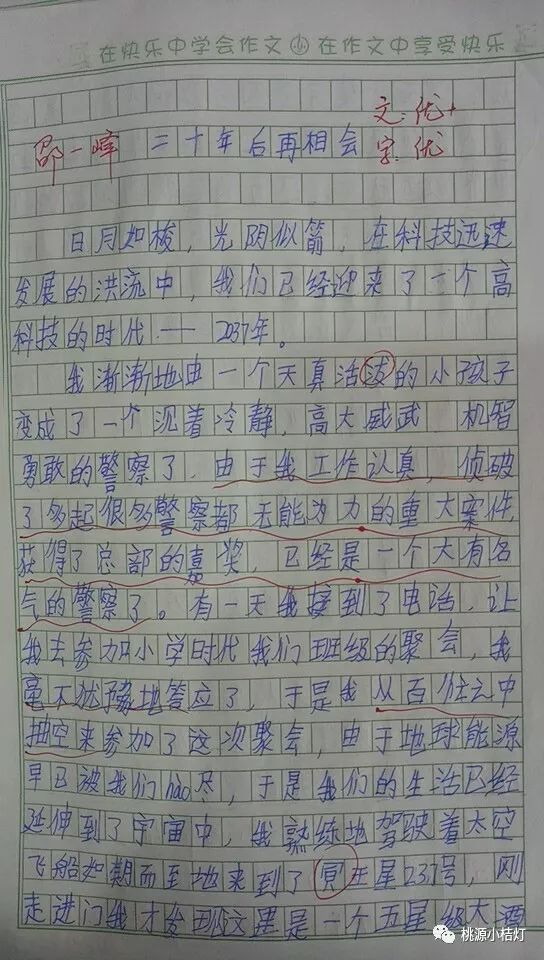 在快乐中学会作文 小 在作文中享受快乐
文:优+
邵一峰 二十年后再相会 字:优
日月如梭,光阴似箭,在科技迅速
发展的洪流中,我们已经迎来了一个高
科技的时代——2037年。
我渐渐地由一个天真活泼的小孩子
变成了一个沉着冷静,高大威武,机智
勇敢的警察了,由于我工作认真,侦破
了多起很多警察都无能为力的重大案件,
获得了总部的嘉奖,已经是一个大有名
气的警察了。有一天我接到了电话,让
我去参加小学时代我们班级的聚会,我
毫不犹豫地答应了,于是我从百忙之中
抽空来参加了这次聚会,由于地球能源
早已被我们hào尽,于是我们的生活已经
延伸到了宇宙中,我熟练地驾驶着太空
飞船如期而至地来到了冥王星237号,刚
走进门我才发现这里是一个五星级大酒
桃源小桔灯